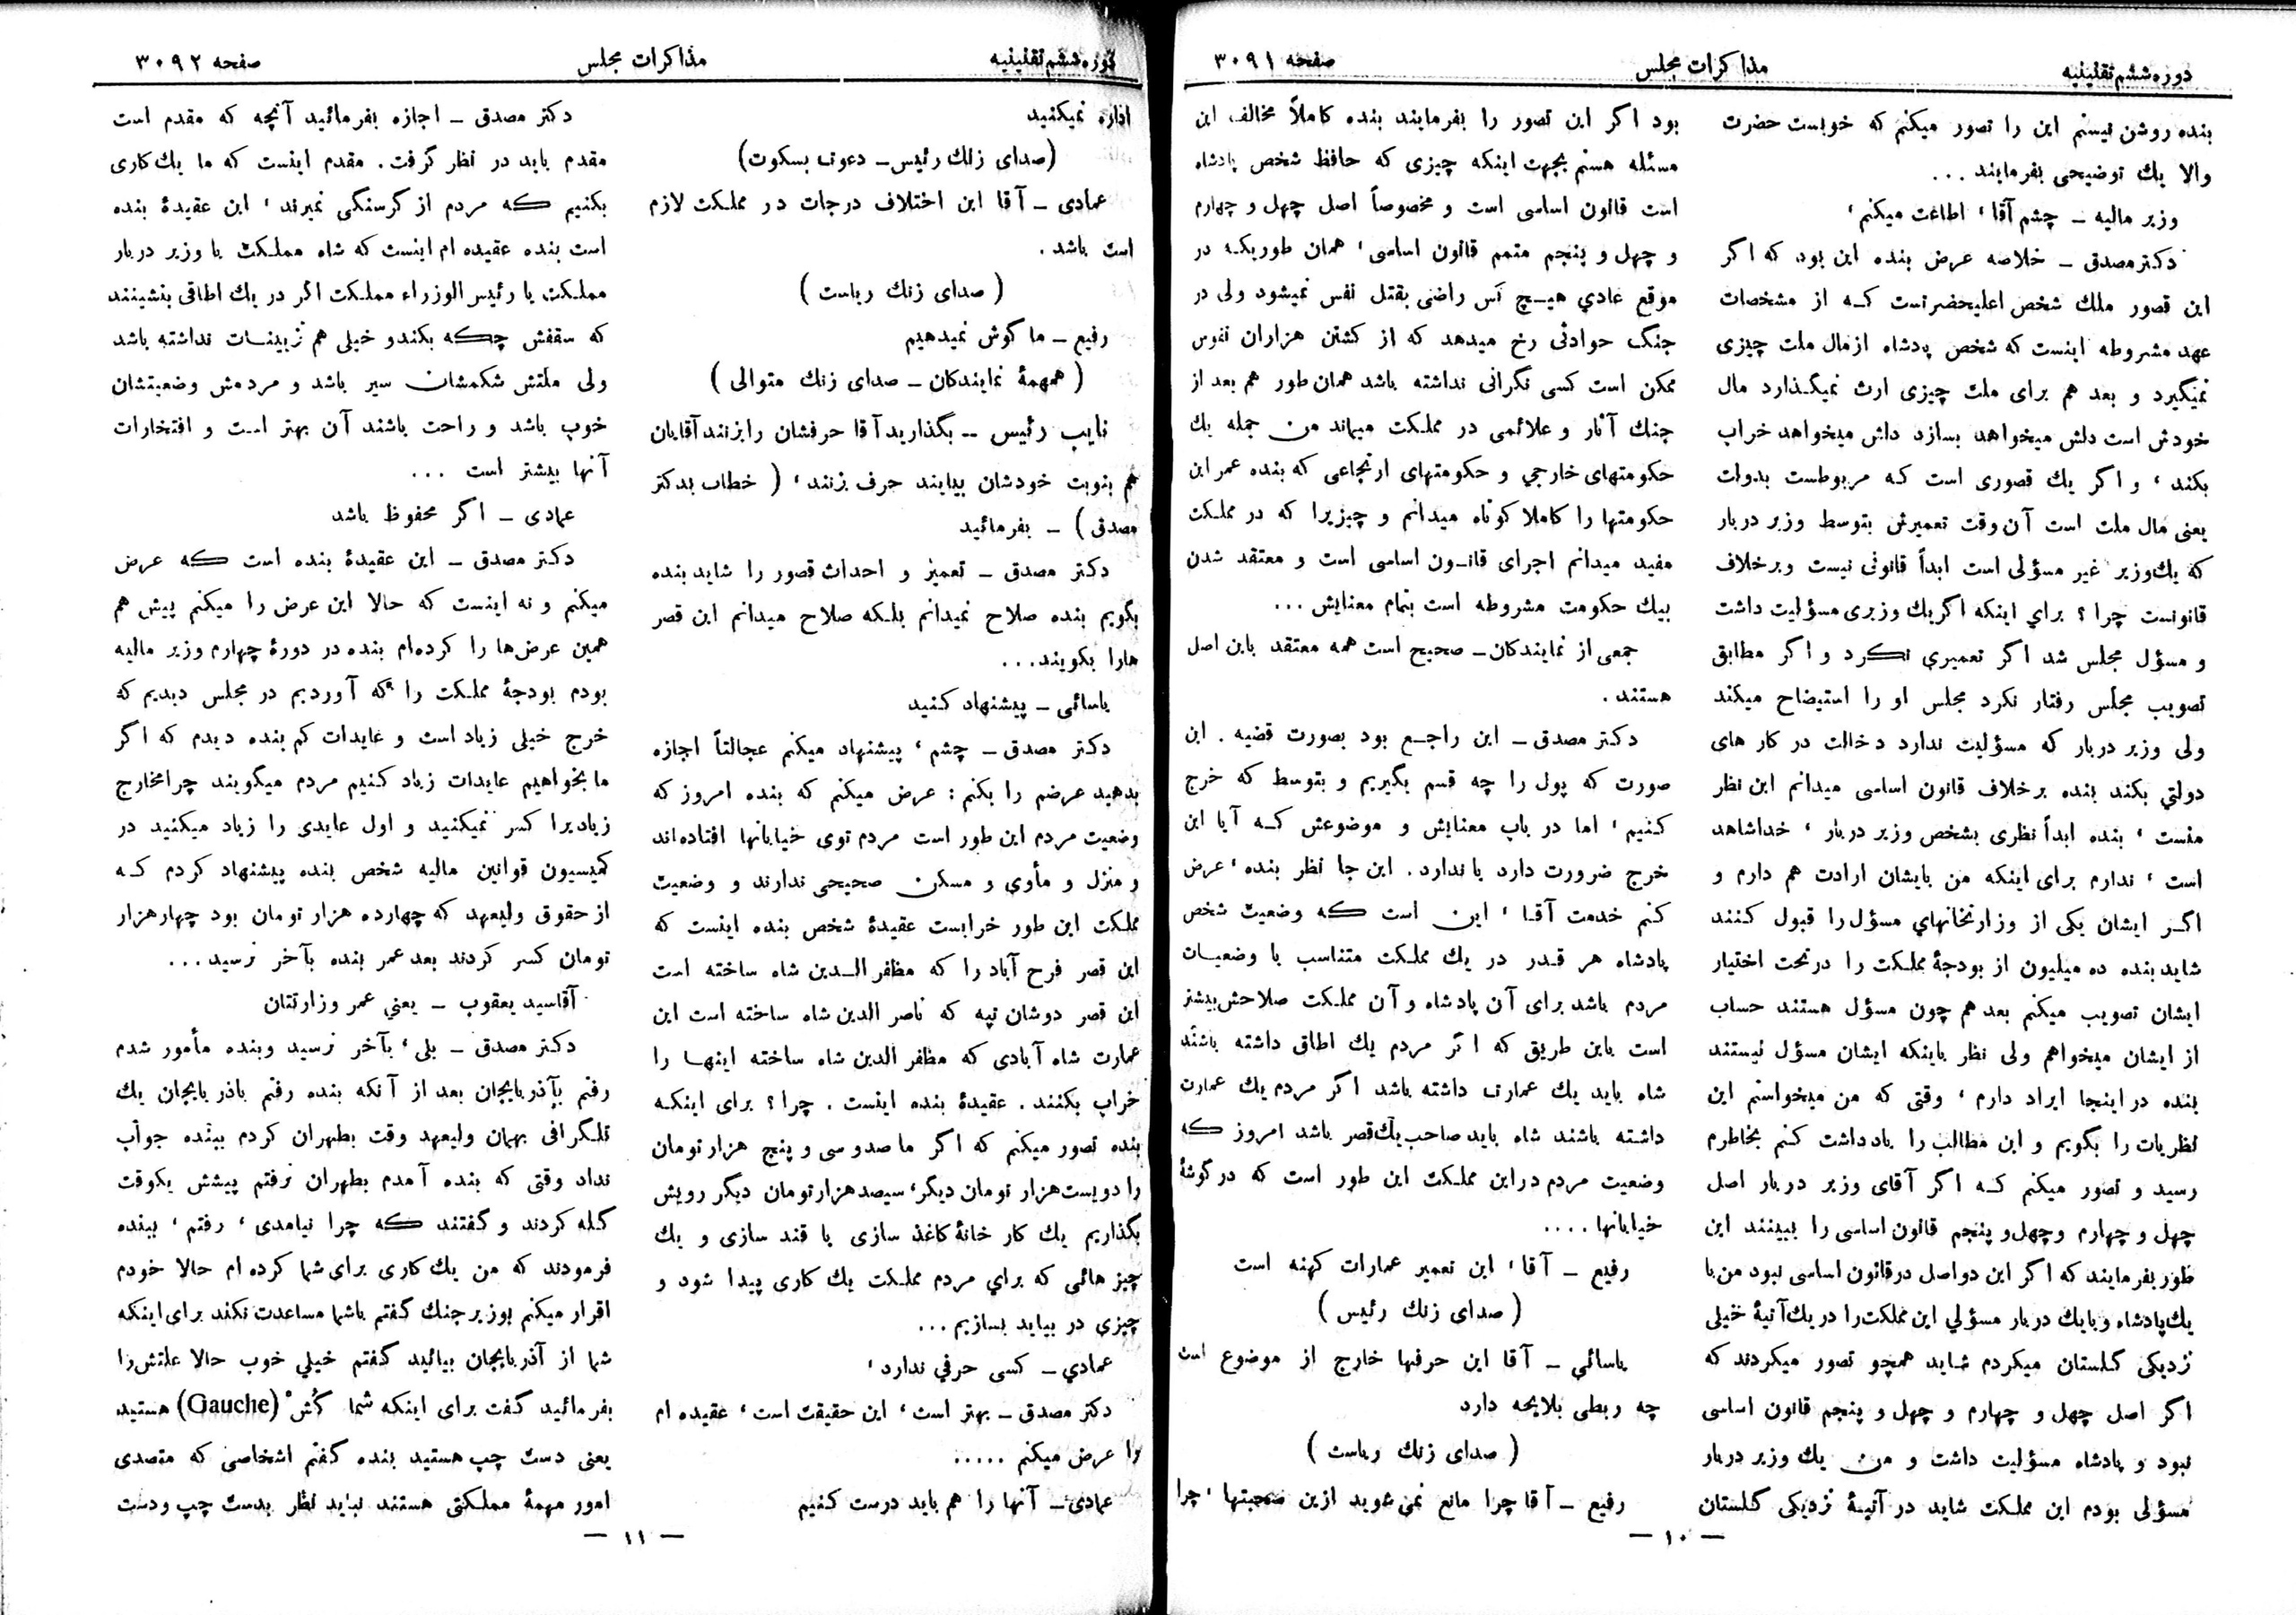 دوره ششم تقنینیه
مذاکرات مجلس
صفحه ۳۰۹۱
بنده روشن نیستم این را تصور میکنم که خوبست حضرت
والا یك توضیحی بفرمایند ...
وزیر مالیه ــ چشم آقا ، اطاعت میکنم ،
دکتر مصدق ــ خلاصه عرض بنده این بود که اگر
این قصور ملك شخص اعلیحضرتست که از مشخصات
عهد مشروطه اینست که شخص پادشاه از مال ملت چیزی
نمیگیرد و بعد هم برای ملت چیزی ارث نمیگذارد مال
خودش است دلش میخواهد بسازد دلش میخواهد خراب
بکند ، و اگر یك قصوری است که مربوطست بدولت
یعنی مال ملت است آن وقت تعمیرش بتوسط وزیر دربار
که یك وزیر غیر مسؤلی است ابداً قانونی نیست و برخلاف
قانونست چرا ؟ برای اینکه اگر یك وزیری مسؤلیت داشت
و مسؤل مجلس شد اگر تعمیری نکرد و اگر مطابق
تصویب مجلس رفتار نکرد مجلس او را استیضاح میکند
ولی وزیر دربار که مسؤلیت ندارد دخالت در کار های
دولتی بکند بنده برخلاف قانون اساسی میدانم این نظر
منست ، بنده ابداً نظری بشخص وزیر دربار ، خدا شاهد
است ، ندارم برای اینکه من بایشان ارادت هم دارم و
اگر ایشان یکی از وزارتخانهای مسؤل را قبول کنند
شاید بنده ده میلیون از بودجهٔ مملکت را در تحت اختیار
ایشان تصویب میکنم بعد هم چون مسؤل هستند حساب
از ایشان میخواهم ولی نظر باینکه ایشان مسؤل نیستند
بنده در اینجا ایراد دارم ، وقتی که من میخواستم این
نظریات را بگویم و این مطالب را یادداشت کنم بخاطرم
رسید و تصور میکنم که اگر آقای وزیر دربار اصل
چهل و چهارم و چهل و پنجم قانون اساسی را ببینند این
طور بفرمایند که اگر این دو اصل در قانون اساسی نبود من با
یك پادشاه و با یك دربار مسؤلی این مملکت را در یك آتیهٔ خیلی
نزدیکی گلستان میکردم شاید همچو تصور میکردند که
اگر اصل چهل و چهارم و چهل و پنجم قانون اساسی
نبود و پادشاه مسؤلیت داشت و من یك وزیر دربار
مسؤلی بودم این مملکت شاید در آتیهٔ نزدیکی گلستان
بود اگر این تصور را بفرمایند بنده کاملاً مخالف این
مسئله هستم بجهت اینکه چیزی که حافظ شخص پادشاه
است قانون اساسی است و مخصوصاً اصل چهل و چهارم
و چهل و پنجم متمم قانون اساسی ، همان طوریکه در
موقع عادی هیچ کس راضی بقتل نفس نمیشود ولی در
جنگ حوادثی رخ میدهد که از کشتن هزاران نفوس
ممکن است کسی نگرانی نداشته باشد همان طور هم بعد از
جنك آثار و علائمی در مملکت میماند من جمله یك
حکومتهای خارجی و حکومتهای ارتجاعی که بنده عمر این
حکومتها را کاملا کوتاه میدانم و چیزیرا که در مملکت
مفید میدانم اجرای قانون اساسی است و معتقد شدن
بیك حکومت مشروطه است بتمام معنایش ...
جمعی از نمایندکان ــ صحیح است همه معتقد باین اصل
هستند .
دکتر مصدق ــ این راجع بود بصورت قضیه . این
صورت که پول را چه قسم بگیریم و بتوسط که خرج
کنیم ، اما در باب معنایش و موضوعش که آیا این
خرج ضرورت دارد یا ندارد . این جا نظر بنده ، عرض
کنم خدمت آقا ، این است که وضعیت شخص
پادشاه هر قدر در یك مملکت متناسب با وضعیات
مردم باشد برای آن پادشاه و آن مملکت صلاحش بیشتر
است باین طریق که اگر مردم یك اطاق داشته باشند
شاه باید یك عمارت داشته باشد اگر مردم یك عمارت
داشته باشند شاه باید صاحب یك قصر باشد امروز که
وضعیت مردم در این مملکت این طور است که در گوشهٔ
خیابانها ....
رفیع ــ آقا ، این تعمیر عمارات کهنه است
( صدای زنك رئیس )
یاسائی ــ آقا این حرفها خارج از موضوع است
چه ربطی بلایحه دارد
( صدای زنك ریاست )
رفیع ــ آقا چرا مانع نمی شوید ازین صحبتها ، چرا
ــ ۱۰ ــ
دوره ششم تقنینیه
مذاکرات مجلس
صفحه ۳۰۹۲
اداره نمیکنید
(صدای زنك رئیس ــ دعوت بسکوت)
عمادی ــ آقا این اختلاف درجات در مملکت لازم
است باشد .
( صدای زنك ریاست )
رفیع ــ ما گوش نمیدهیم
( همهمهٔ نمایندکان ــ صدای زنك متوالی )
نایب رئیس ــ بگذارید آقا حرفشان را بزنند آقایان
هم بنوبت خودشان بیایند حرف بزنند ، ( خطاب بدکتر
مصدق ) ــ بفرمائید
دکتر مصدق ــ تعمیر و احداث قصور را شاید بنده
بگویم بنده صلاح نمیدانم بلکه صلاح میدانم این قصر
هارا بکوبند...
یاسائی ــ پیشنهاد کنید
دکتر مصدق ــ چشم ، پیشنهاد میکنم عجالتاً اجازه
بدهید عرضم را بکنم : عرض میکنم که بنده امروز که
وضعیت مردم این طور است مردم توی خیابانها افتاده اند
و منزل و مأوی و مسکن صحیحی ندارند و وضعیت
مملکت این طور خرابست عقیدهٔ شخص بنده اینست که
این قصر فرح آباد را که مظفر الدین شاه ساخته است
این قصر دوشان تپه که ناصر الدین شاه ساخته است این
عمارت شاه آبادی که مظفر الدین شاه ساخته اینها را
خراب بکنند . عقیدهٔ بنده اینست . چرا ؟ برای اینکه
بنده تصور میکنم که اگر ما صد و سی و پنج هزار تومان
را دویست هزار تومان دیگر ، سیصد هزار تومان دیگر رویش
بگذاریم یك کار خانهٔ کاغذ سازی یا قند سازی و یك
چیز هائی که برای مردم مملکت یك کاری پیدا شود و
چیزی در بیاید بسازیم ...
عمادی ــ کسی حرفی ندارد ،
دکتر مصدق ــ بهتر است ، این حقیقت است ، عقیده ام
را عرض میکنم .....
عمادی ــ آنها را هم باید درست کنیم
دکتر مصدق ــ اجازه بفرمائید آنچه که مقدم است
مقدم باید در نظر گرفت . مقدم اینست که ما یك کاری
بکنیم که مردم از گرسنگی نمیرند ، این عقیدهٔ بنده
است بنده عقیده ام اینست که شاه مملکت یا وزیر دربار
مملکت یا رئیس الوزراء مملکت اگر در یك اطاقی بنشینند
که سقفش چکه بکند و خیلی هم تزیینات نداشته باشد
ولی ملتش شکمشان سیر باشد و مردمش وضعیتشان
خوب باشد و راحت باشند آن بهتر است و افتخارات
آنها بیشتر است ...
عمادی ــ اگر محفوظ باشد
دکتر مصدق ــ این عقیدهٔ بنده است که عرض
میکنم و نه اینست که حالا این عرض را میکنم پیش هم
همین عرض‌ها را کرده‌ام بنده در دورهٔ چهارم وزیر مالیه
بودم بودجهٔ مملکت را که آوردیم در مجلس دیدیم که
خرج خیلی زیاد است و عایدات کم بنده دیدم که اگر
ما بخواهیم عایدات زیاد کنیم مردم میگویند چرا مخارج
زیادیرا کسر نمیکنید و اول عایدی را زیاد میکنید در
کمیسیون قوانین مالیه شخص بنده پیشنهاد کردم که
از حقوق ولیعهد که چهارده هزار تومان بود چهار هزار
تومان کسر کردند بعد عمر بنده بآخر نرسید ...
آقا سید یعقوب ــ یعنی عمر وزارتتان
دکتر مصدق ــ بلی ، بآخر نرسید و بنده مأمور شدم
رفتم بآذربایجان بعد از آنکه بنده رفتم باذربایجان یك
تلگرافی بهمان ولیعهد وقت بطهران کردم ببنده جواب
نداد وقتی که بنده آمدم بطهران نرفتم پیشش یکوقت
گله کردند و گفتند که چرا نیامدی ، رفتم ، ببنده
فرمودند که من یك کاری برای شما کرده ام حالا خودم
اقرار میکنم بوزیر جنك گفتم باشما مساعدت نکند برای اینکه
شما از آذربایجان بیائید گفتم خیلی خوب حالا علتش را
بفرمائید گفت برای اینکه شما گش (Gauche) هستید
یعنی دست چپ هستید بنده گفتم اشخاصی که متصدی
امور مهمهٔ مملکتی هستند نباید نظر بدست چپ و دست
ــ ۱۱ ــ